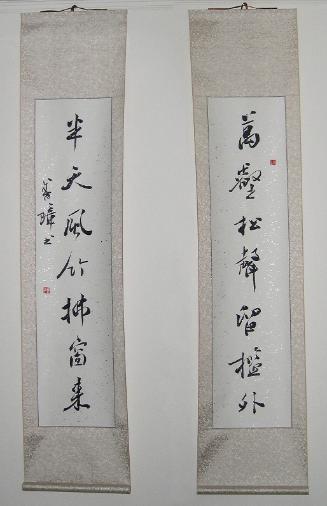 萬壑松聲留檻外
半天風竹拂窗來
璋书